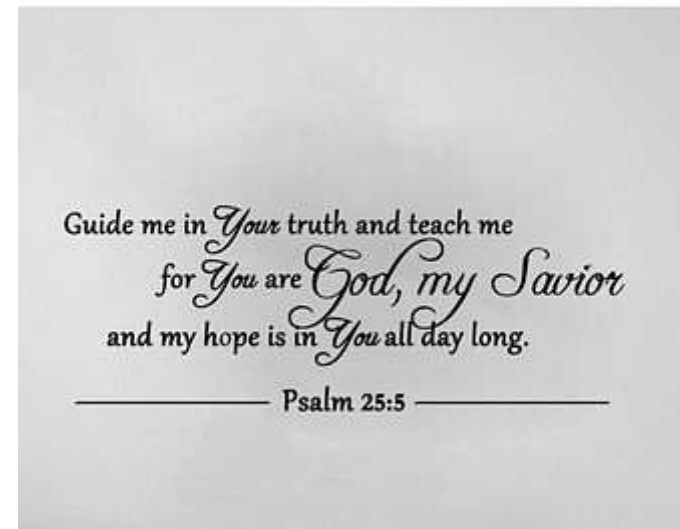 Guide me in Your truth and teach me
for You are God, my Savior
and my hope is in You all day long.
Psalm 25:5